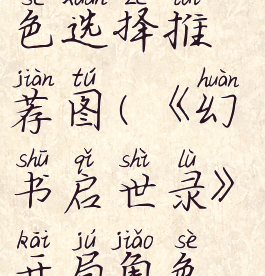 sè xuǎn zé tuī
色选择推
jiàn tú huàn
荐图(《幻
shū qǐ shì lù
书启世录》
kāi jú jiǎo sè
开局角色